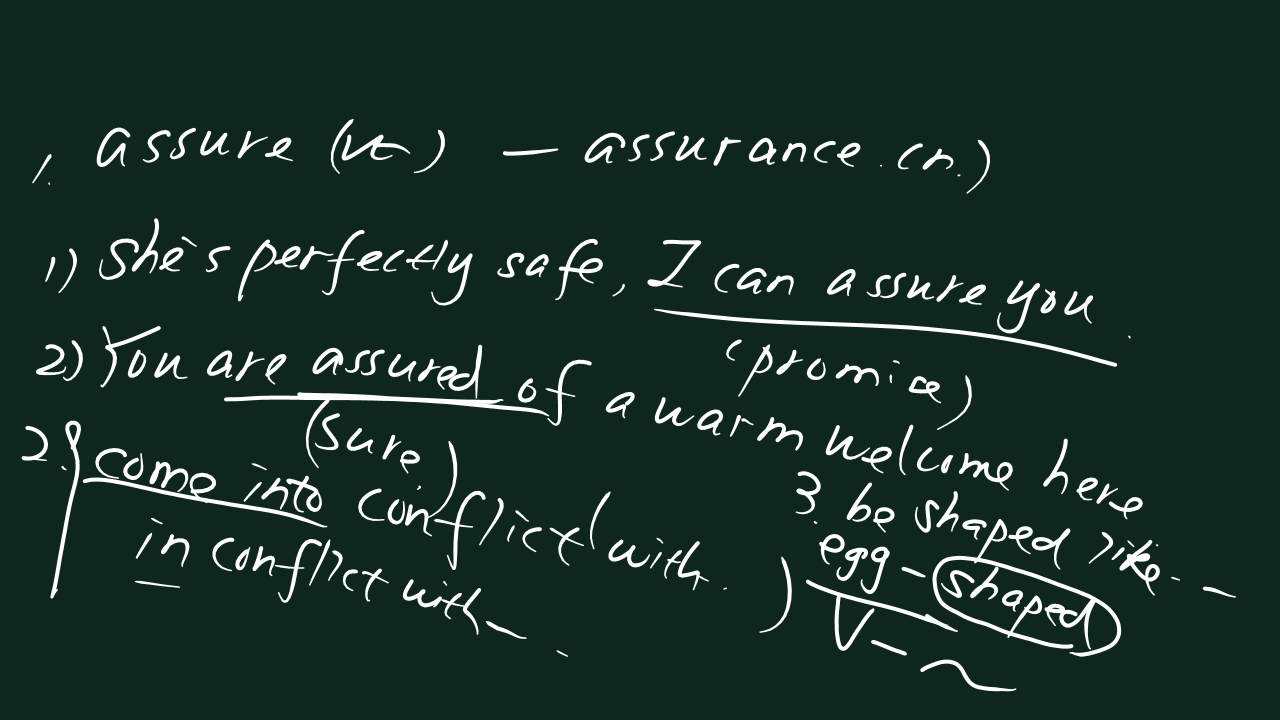 1. assure (vt) — assurance. (n.)
1) She's perfectly safe, I can assure you.
(promise)
2) You are assured of a warm welcome here
(sure.)
2. come into conflict (with. )
in conflict with — .
3. be shaped like - —
egg - shaped
V - ~